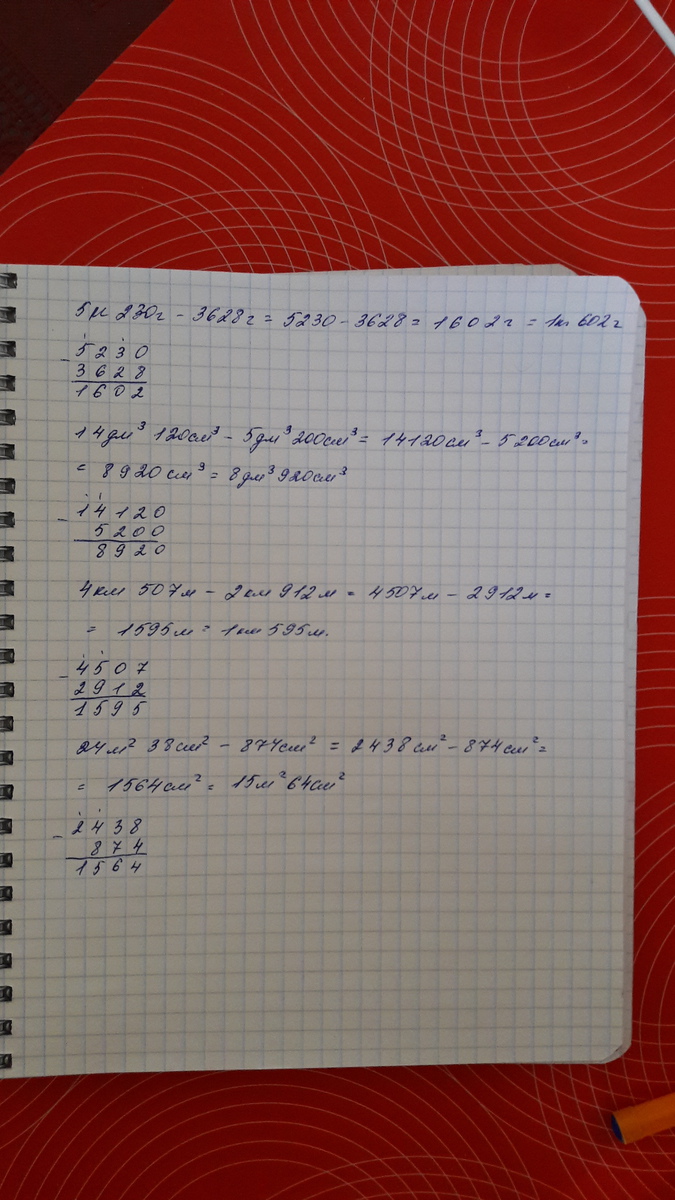 5кг 230г - 3628г = 5230 - 3628 = 1602г = 1кг 602г
- 5230
3628
1602
14дм³ 120см³ - 5дм³200см³ = 14120см³ - 5200см³ =
= 8920см³ = 8дм³920см³
- 14120
5200
8920
4км 507м - 2км 912м = 4507м - 2912м =
= 1595м = 1км 595м.
- 4507
2912
1595
24м² 38см² - 874см² = 2438см² - 874см² =
= 1564см² = 15м²64см²
- 2438
874
1564